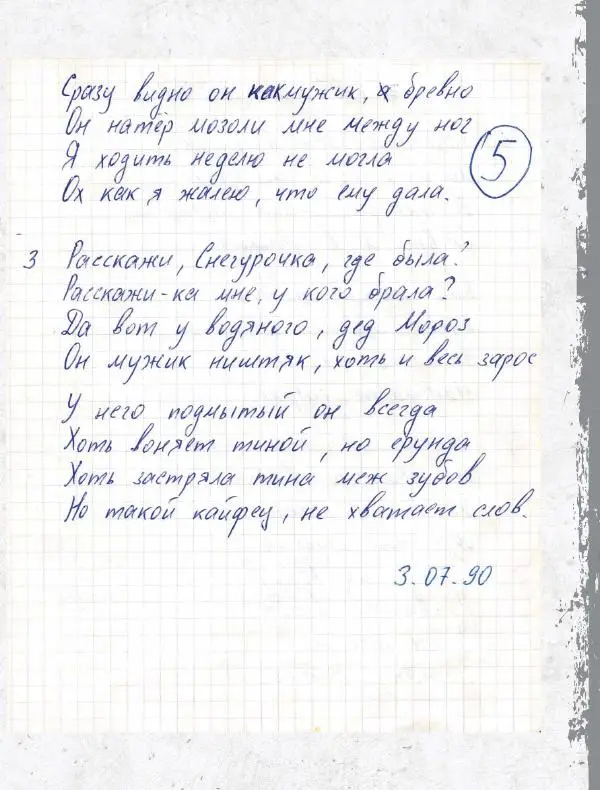 Сразу видно он как мужик, а бревно
Он натёр мозоли мне между ног
5
Я ходить неделю не могла
Ох как я жалею, что ему дала.
3 Расскажи, Снегурочка, где была?
Расскажи-ка мне, у кого брала?
Да вот у водяного, дед Мороз
Он мужик ништяк, хоть и весь зарос
У него подмытый он всегда
Хоть воняет тиной, но ерунда
Хоть застряла тина меж зубов
Но такой кайфец, не хватает слов.
3.07.90